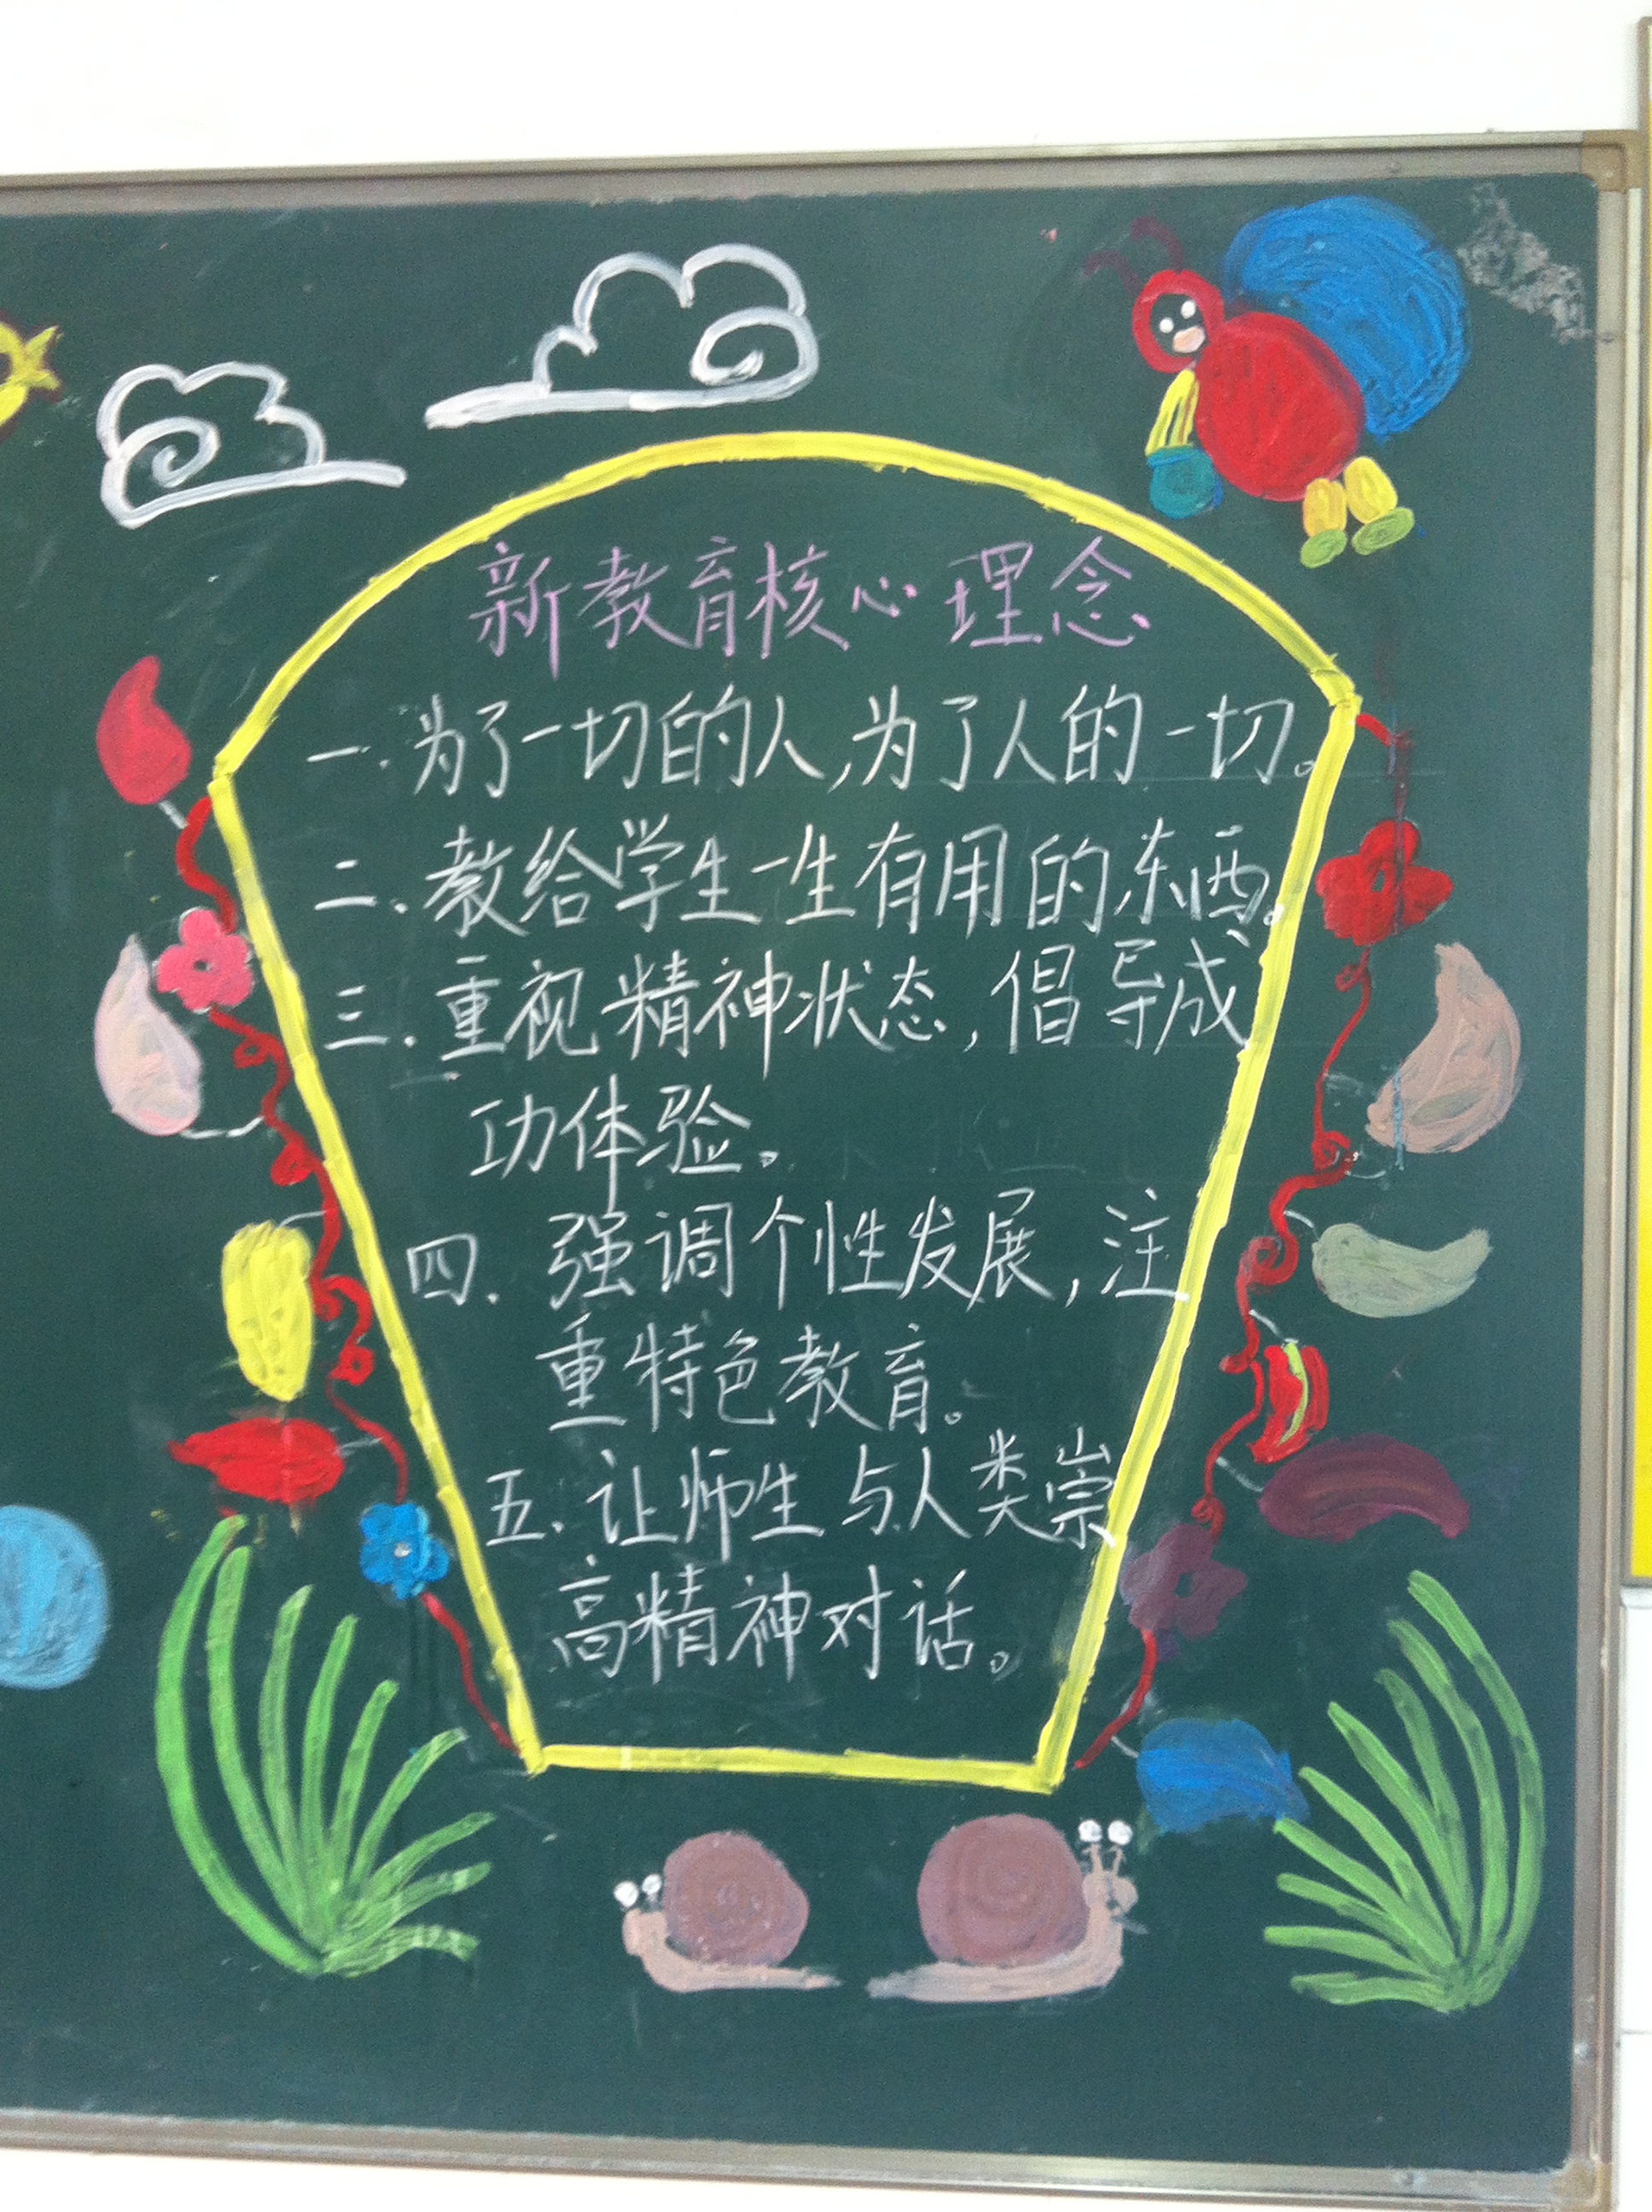 新教育核心理念
一.为了一切的人,为了人的一切。
二.教给学生一生有用的东西。
三.重视精神状态,倡导成
功体验。
四.强调个性发展,注
重特色教育。
五.让师生与人类崇
高精神对话。